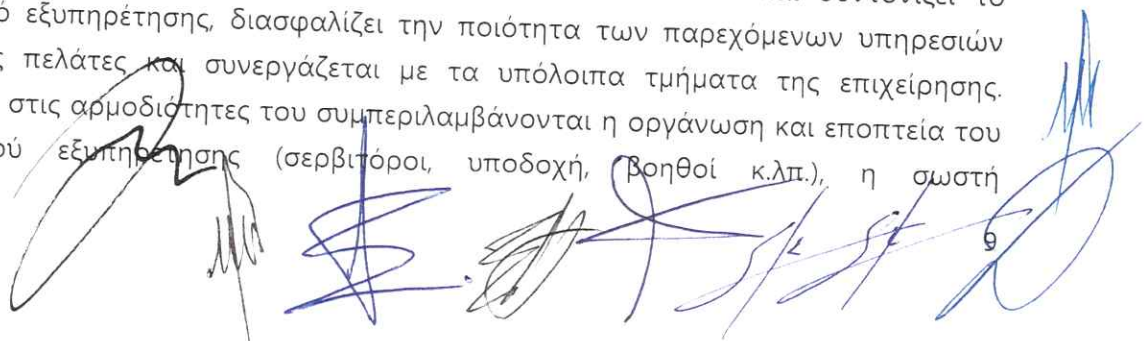 συντονίζει το
εξυπηρέτησης, διασφαλίζει την ποιότητα των παρεχόμενων υπηρεσιών
πελάτες και συνεργάζεται με τα υπόλοιπα τμήματα της επιχείρησης.
στις αρμοδιότητες του συμπεριλαμβάνονται η οργάνωση και εποπτεία του
εξυπηρέτησης (σερβιτόροι, υποδοχή, βοηθοί κ.λπ.), η σωστή
9